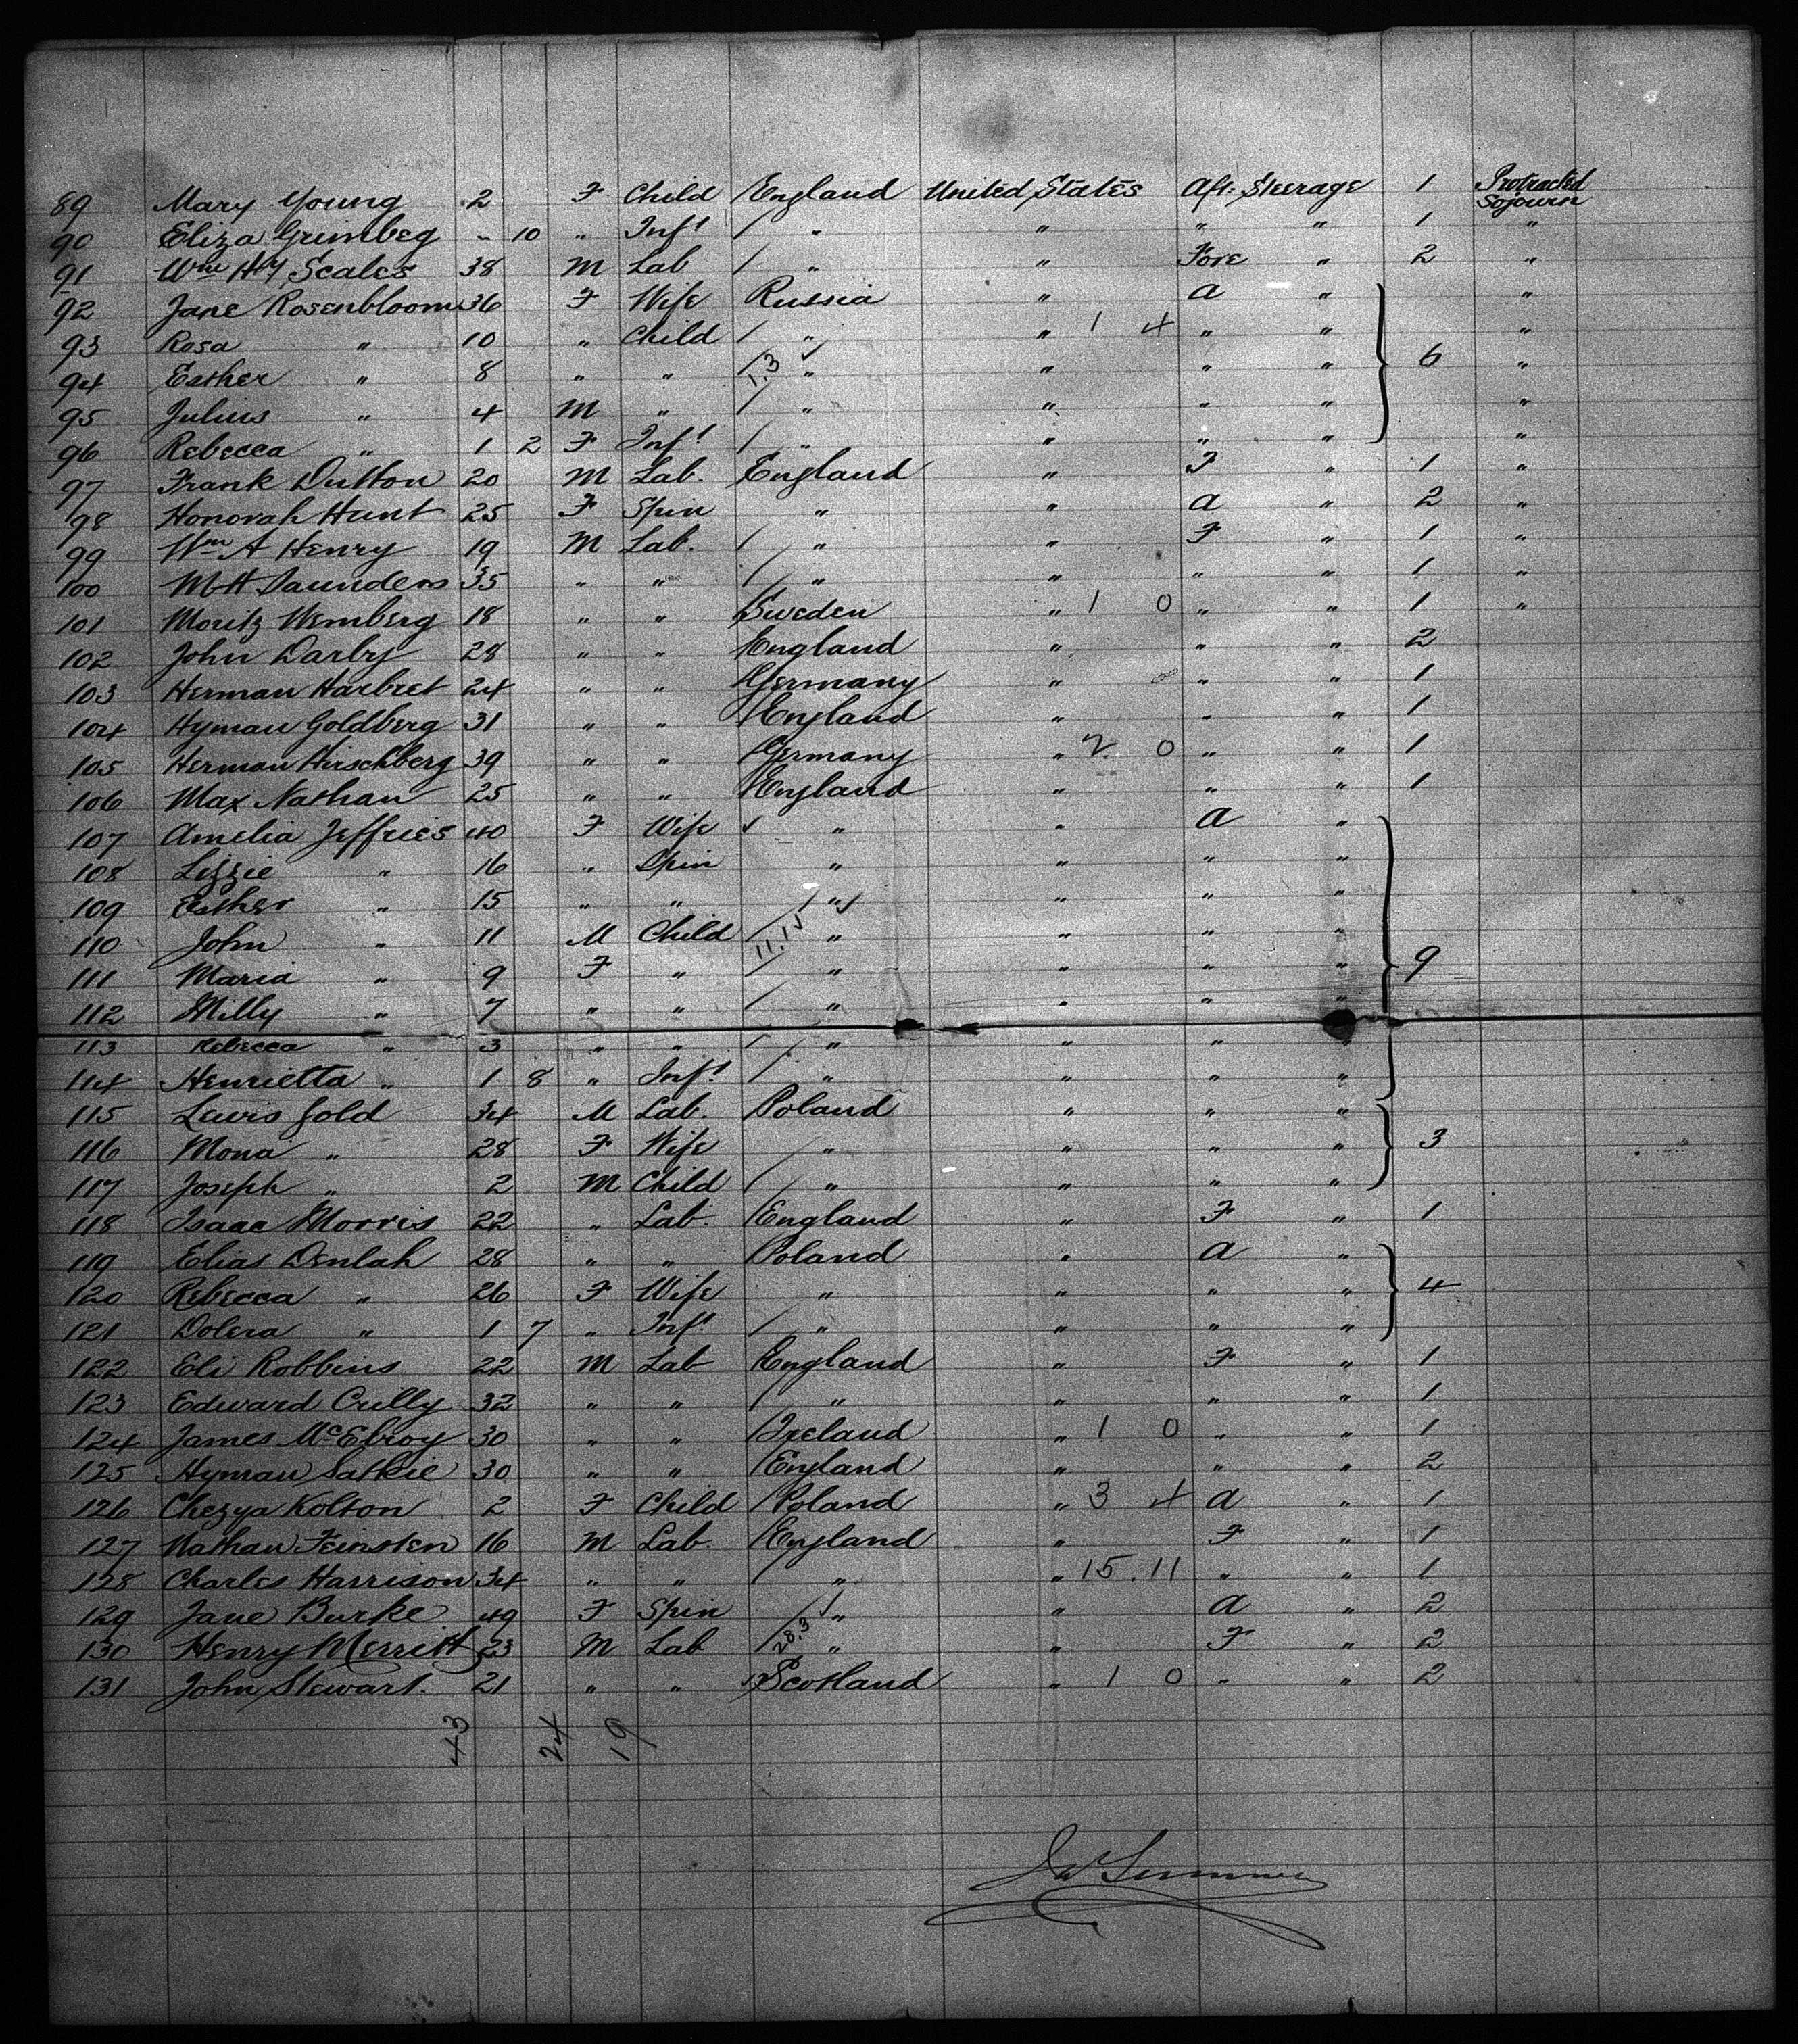 89 Mary Young 2 F Child England United States Aft. Steerage 1 Protracted Sojourn
90 Eliza Grimbeg " 10 " Inft / " " " " 1 "
91 Wm Hy Scales 38 M Lab / " " Fore " 2 "
92 Jane Rosenbloom 36 F Wife Russia " A " "
93 Rosa " 10 " Child / " " 1 4 " " "
94 Esther " 8 " " / 1,3 ✓ " " " " 6 "
95 Julius " 4 M " / " " " " "
96 Rebecca " 1 2 F Inft / " " " " "
97 Frank Dutton 20 M Lab. England " F " 1 "
98 Honorah Hunt 25 F Spin " " A " 2 "
99 Wm A Henry 19 M Lab. / " " F " 1 "
100 M H Saunders 35 " " / " " " " 1 "
101 Moritz Wemberg 18 " " Sweden " 1 0 " " 1 "
102 John Darby 28 " " England " " " 2
103 Herman Harbret 24 " " Germany " 0 " " 1
104 Hyman Goldberg 31 " " England " " " 1
105 Herman Hirschberg 39 " " Germany " 2. 0 " " 1
106 Max Nathan 25 " " England " " " 1
107 Amelia Jeffries 40 F Wife ✓ " " A "
108 Lizzie " 16 " Spin " " " "
109 Esther " 15 " " / " ✓ " " "
110 John " 11 M Child / 11,1 ✓ " " " "
111 Maria " 9 F " / " " " " 9
112 Milly " 7 " " / " " " "
113 Rebecca " 3 " " / " " " "
114 Henrietta " 1 8 " Inft / " " " "
115 Lewis Gold 34 M Lab. Poland " " "
116 Mona " 28 F Wife " " " " 3
117 Joseph " 2 M Child / " " " "
118 Isaac Morris 22 " Lab. England " F " 1
119 Elias Denlah 28 " " Poland " A "
120 Rebecca " 26 F Wife " " " " 4
121 Dolera " 1 7 " Inft / " " " "
122 Eli Robbins 22 M Lab England " F " 1
123 Edward Crilly 32 " " / " " " " 1
124 James McElroy 30 " " Ireland " 1 0 " " 1
125 Hyman Satkie 30 " " England " " " 2
126 Chezya Kolton 2 F Child Poland " 3 4 A " 1
127 Nathan Feinsten 16 M Lab. England " F " 1
128 Charles Harrison 34 " " / " " 15. 11 " " 1
129 Jane Burke 49 F Spin / ✓ " " A " 2
130 Henry Merritt 23 M Lab / 28,3 " " F " 2
131 John Stewart. 21 " " Scotland " 1 0 " " 2
43 24 19